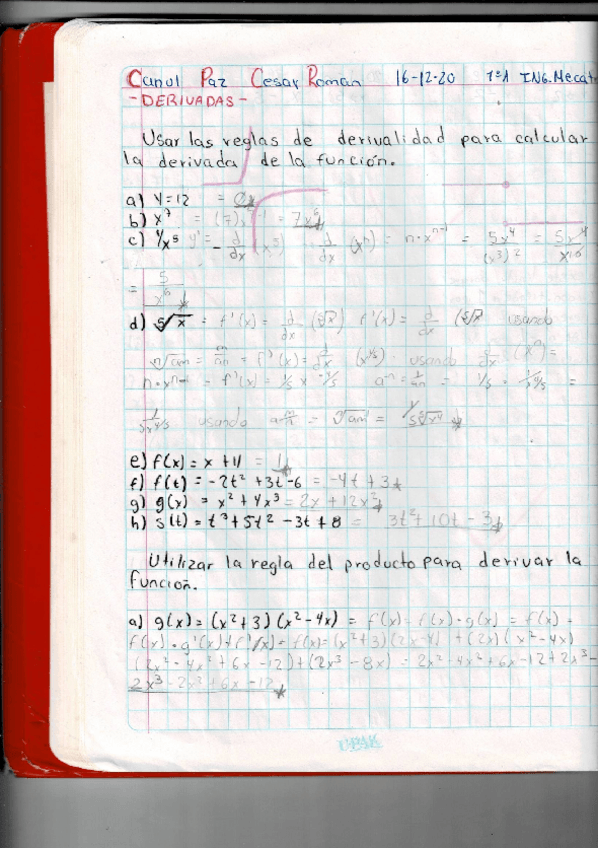 Canul Paz Cesar Roman 16-12-20 1°A ING. Mecat
- DERIVADAS -
Usar las reglas de derivalidad para calcular
la derivada de la función.
a) y = 12 =
b) x⁷ = (7)x⁷⁻¹ = 7x⁶
c) 1/x⁵ y' = - d/dx (x⁵) d/dx (xⁿ) = n·xⁿ⁻¹ = 5x⁴/(x⁵)² = 5x⁴/x¹⁰
= 5/x⁶
d) ⁵√x = f'(x) = d/dx (⁵√x) f'(x) = d/dx (⁵√x usando
ⁿ√aᵐ = f'(x) = d/dx (x^1/5) . usando d/dx (xⁿ) =
n·xⁿ⁻¹ = f'(x) = 1/5 x^-4/5 = 1/5 · 1/x^4/5 =
1/5x^4/5 usando = ⁿ√aᵐ = 1/5⁵√x⁴
e) f(x) = x + 11 = 1
f) f(t) = -2t² + 3t - 6 = -4t + 3
g) g(x) = x² + 4x³ = 2x + 12x²
h) s(t) = t³ + 5t² - 3t + 8 = 3t² + 10t - 3
Utilizar la regla del producto para derivar la
función.
a) g(x) = (x² + 3)(x² - 4x) = f'(x) = f(x) · g(x) = f(x) =
f(x) · g'(x) + f'(x) = f(x) = (x² + 3)(2x - 4) + (2x)(x² - 4x)
(2x³ - 4x² + 6x - 12) + (2x³ - 8x) = 2x² - 4x² + 6x - 12 + 2x³ -
2x³ - 2x² + 6x - 12